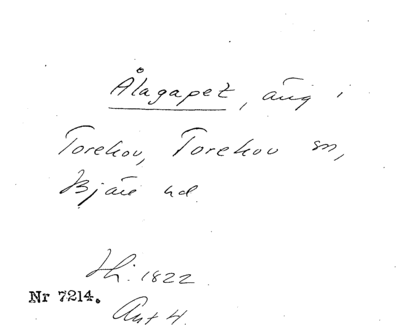 Ålagapet, äng i
Torekov, Torekov sn,
Bjäre hd.
Hj. 1822
Nr 7214.
Ant 4.